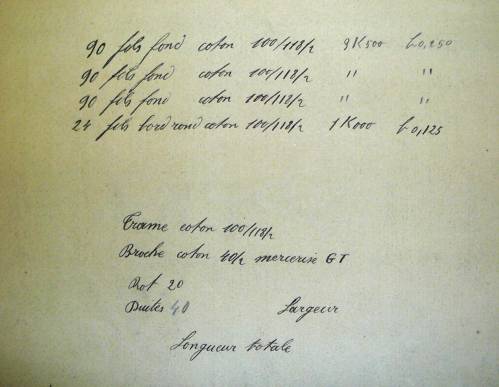 90 fils fond coton 100/118/2 9K500 b 0,250
90 fils fond coton 100/118/2 " "
90 fils fond coton 100/118/2 " "
24 fils bord rond coton 100/118/2 1K000 b 0,125
Trame coton 100/118/2
Broche coton 40/2 mercerisé GT
Rot 20
Duites 40 Largeur
Longueur totale